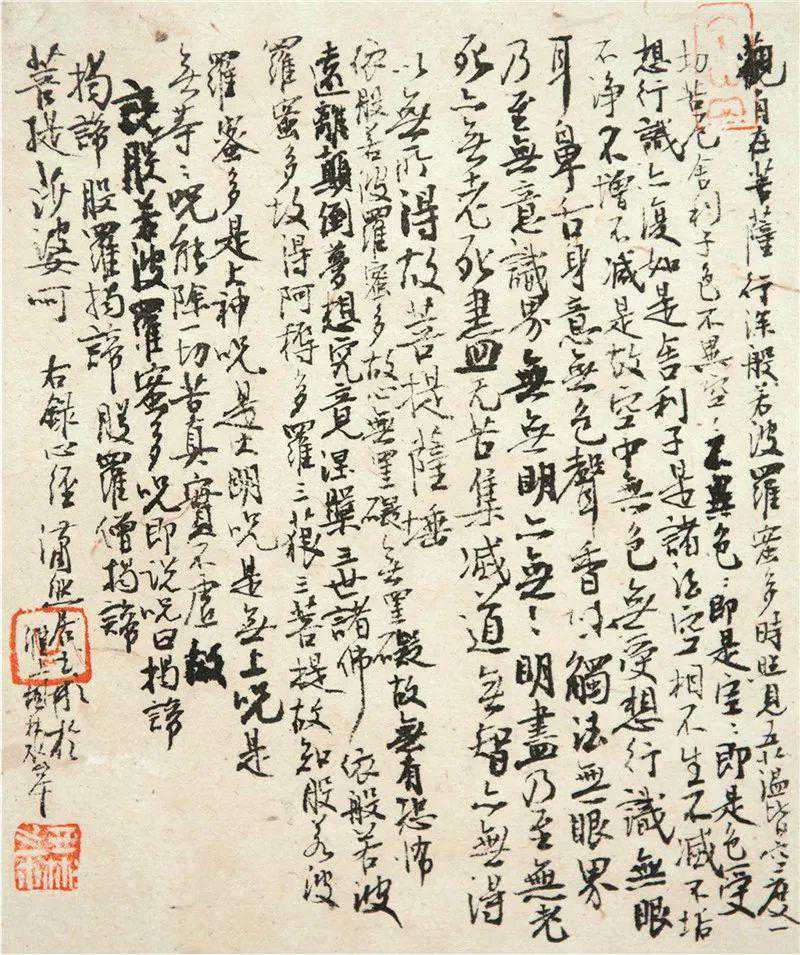 觀自在菩薩行深般若波羅蜜多時照見五蘊皆空度一
切苦厄舍利子色不異空〻不異色〻即是空〻即是色受
想行識亦復如是舍利子是諸法空相不生不滅不垢
不淨不增不減是故空中無色無受想行識無眼
耳鼻舌身意無色聲香味觸法無眼界
乃至無意識界無無明亦無〻明盡乃至無老
死亦無老死盡无苦集滅道無智亦無得
以無所得故菩提薩埵
依般若波羅蜜多故心無罣礙無罣礙故無有恐怖
遠離顛倒夢想究竟涅槃三世諸佛依般若波
羅蜜多故得阿耨多羅三藐三菩提故知般若波
羅蜜多是上神咒是大明咒是無上咒是
無等〻咒能除一切苦真實不虛故
説般若波羅蜜多咒即说咒曰揭諦
揭諦般羅揭諦般羅僧揭諦
菩提莎婆呵 右錄心經 瀟然